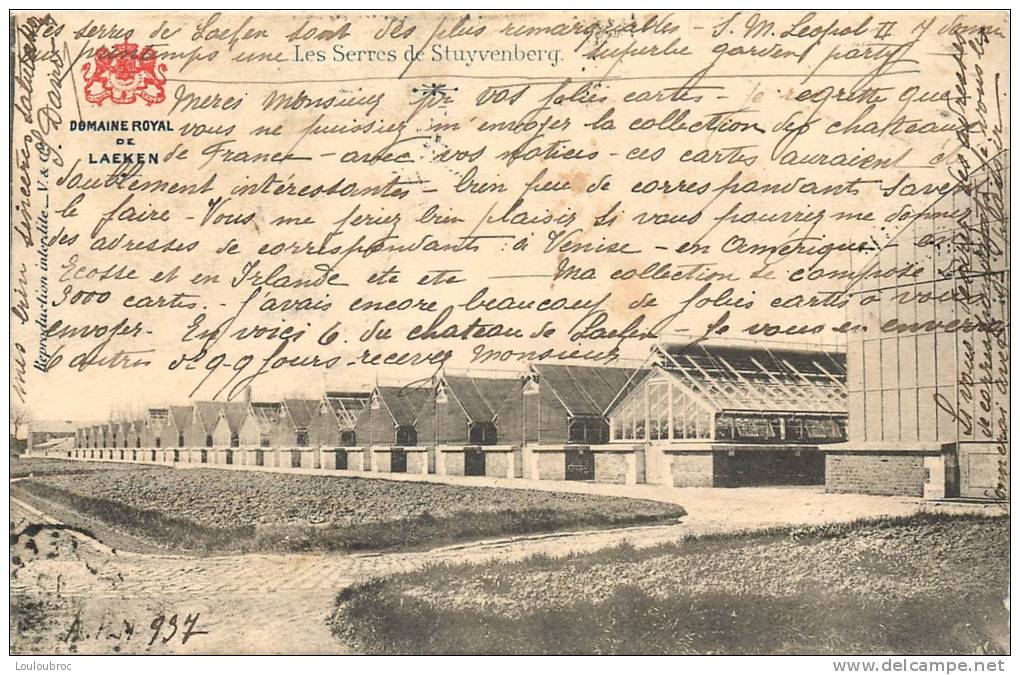 Les serres de Laeken sont des plus remarquables – S. M. Leopol II y donne
printemps une superbe garden party
Les Serres de Stuyvenberg.
DOMAINE ROYAL
DE
LAEKEN
Merci Monsieur pr vos jolies cartes – je regrette que
vous ne puissiez m'envoyer la collection des chateaux
de France – avec vos notices – ces cartes auraient été
doublement intéressantes – bien peu de correspondants savent
le faire – Vous me feriez bien plaisir si vous pouvriez me donner
des adresses de correspondants : à Venise – en Amérique – en
Ecosse et en Irlande etc etc – Ma collection se compose
3000 cartes. – J'avais encore beaucoup de jolies cartes à vous
envoyer. En voici 6. du chateau de Laeken – Je vous en enverrai
6 autres d. q. q jours – recevez Monsieur
mes bien sincères salutations
Reproduction interdite – V. &
A. 937
Louloubroc
www.delcampe.net